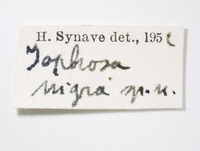 H. Synave det., 195
Iophrosa
nigra sp. n.